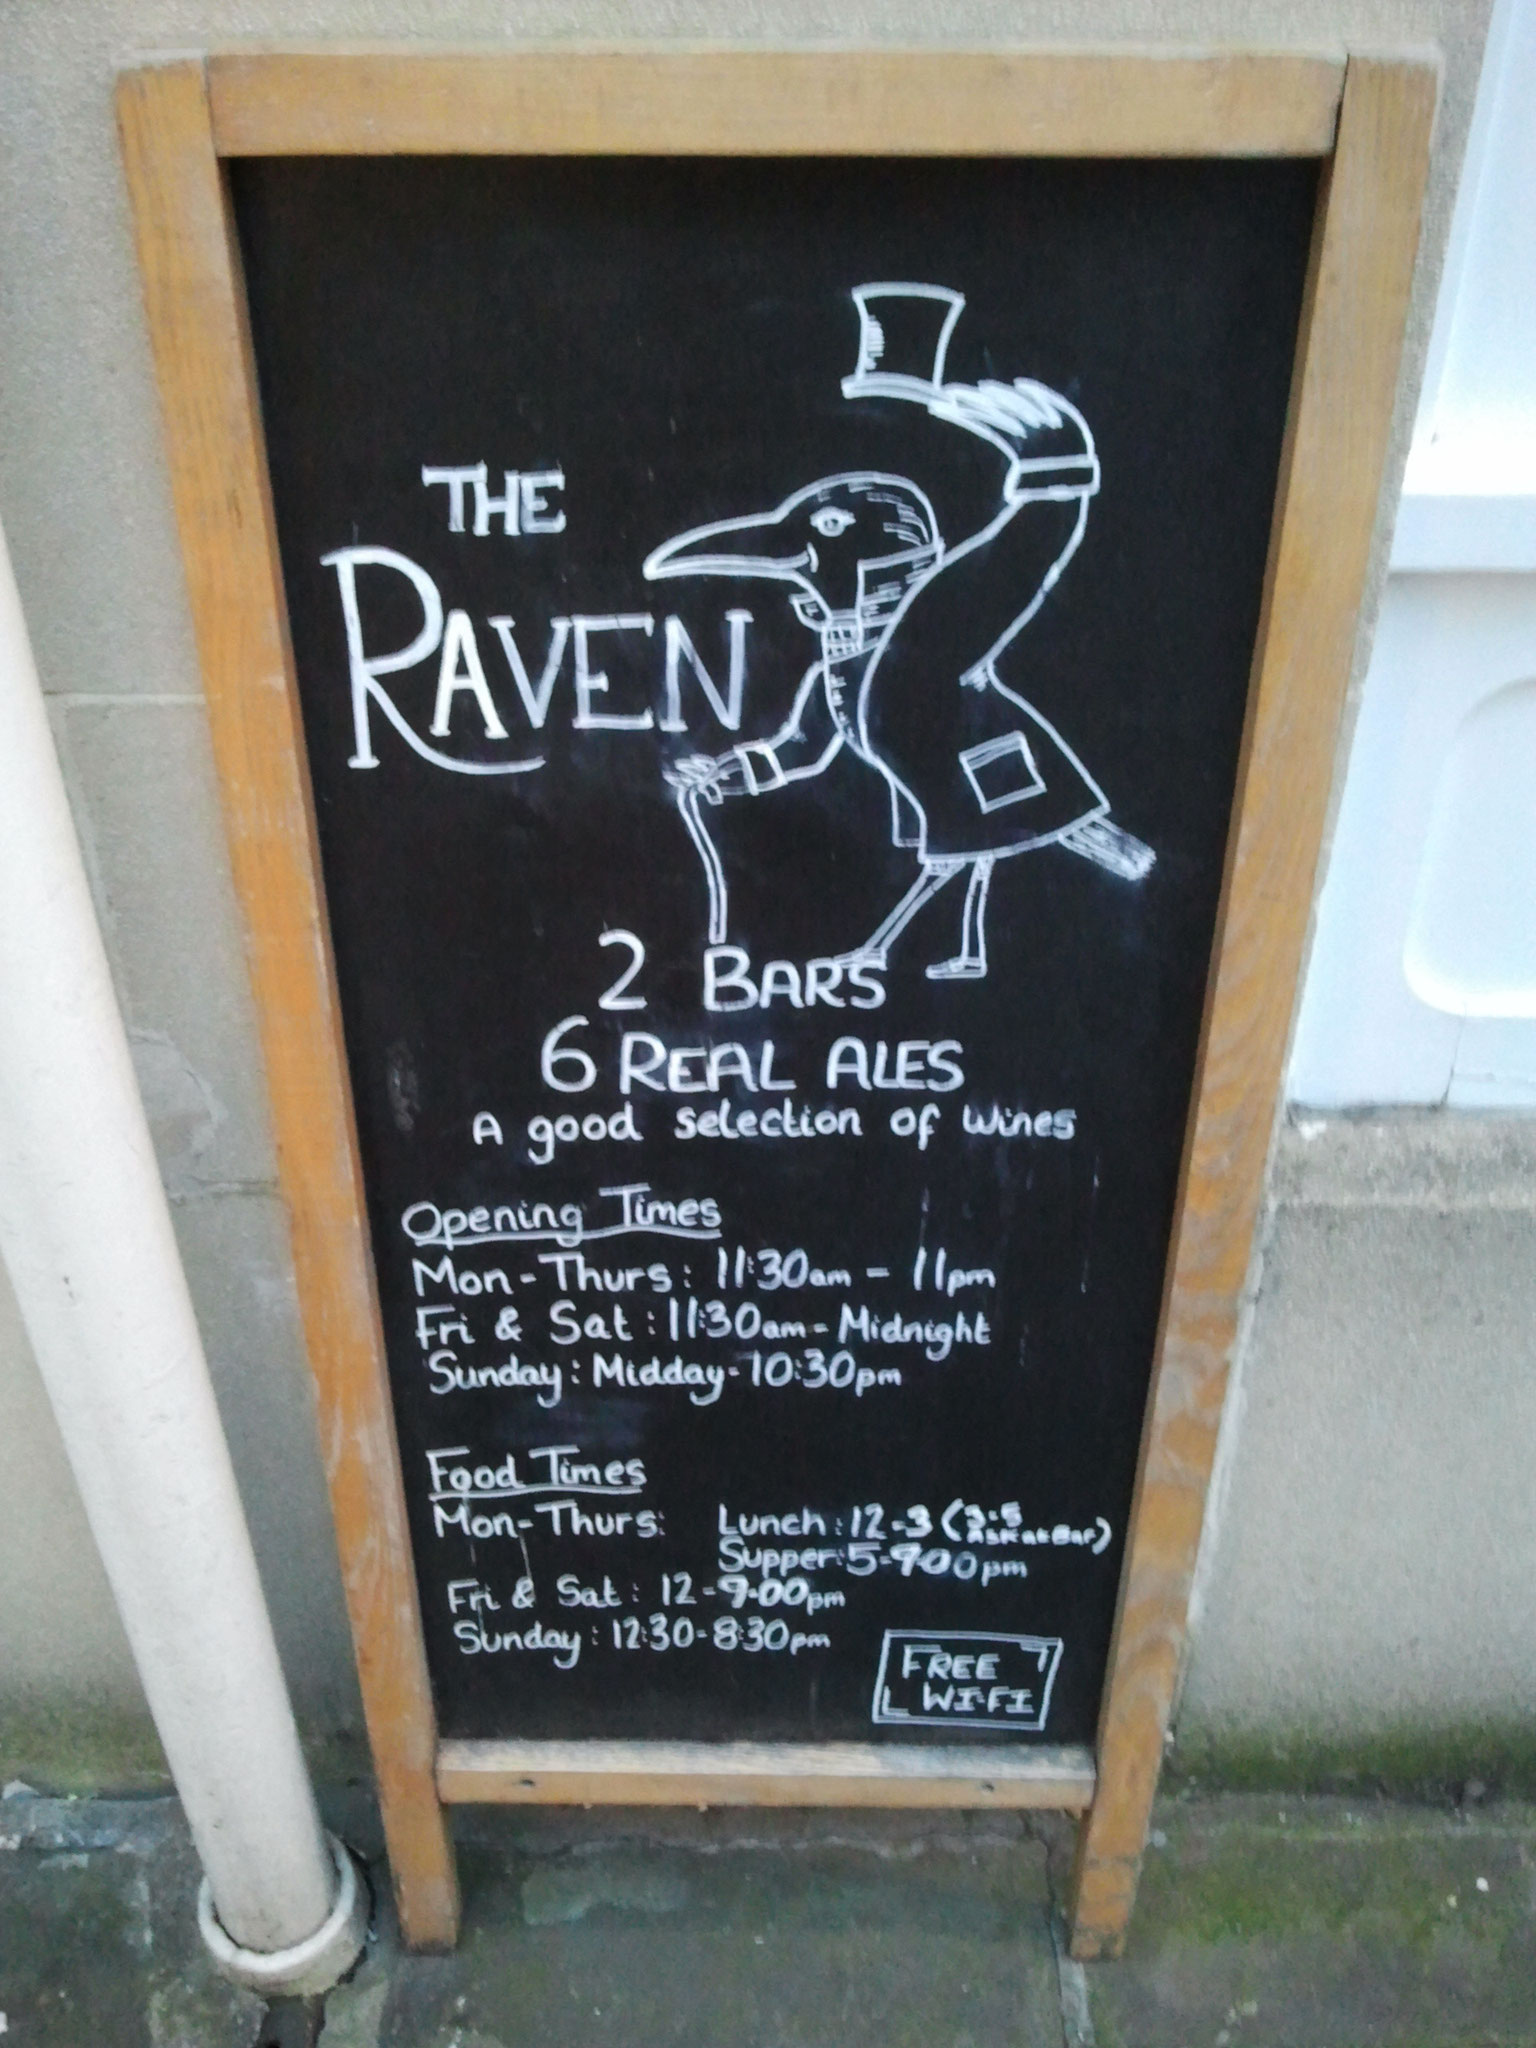 THE
RAVEN
2 BARS
6 REAL ALES
A good selection of wines
Opening Times
Mon-Thurs: 11:30am - 11pm
Fri & Sat: 11:30am - Midnight
Sunday: Midday - 10:30pm
Food Times
Mon-Thurs: Lunch: 12-3 (3-5 Ask at Bar)
Supper: 5-9:00pm
Fri & Sat: 12-9:00pm
Sunday: 12:30-8:30pm
FREE
WI-FI